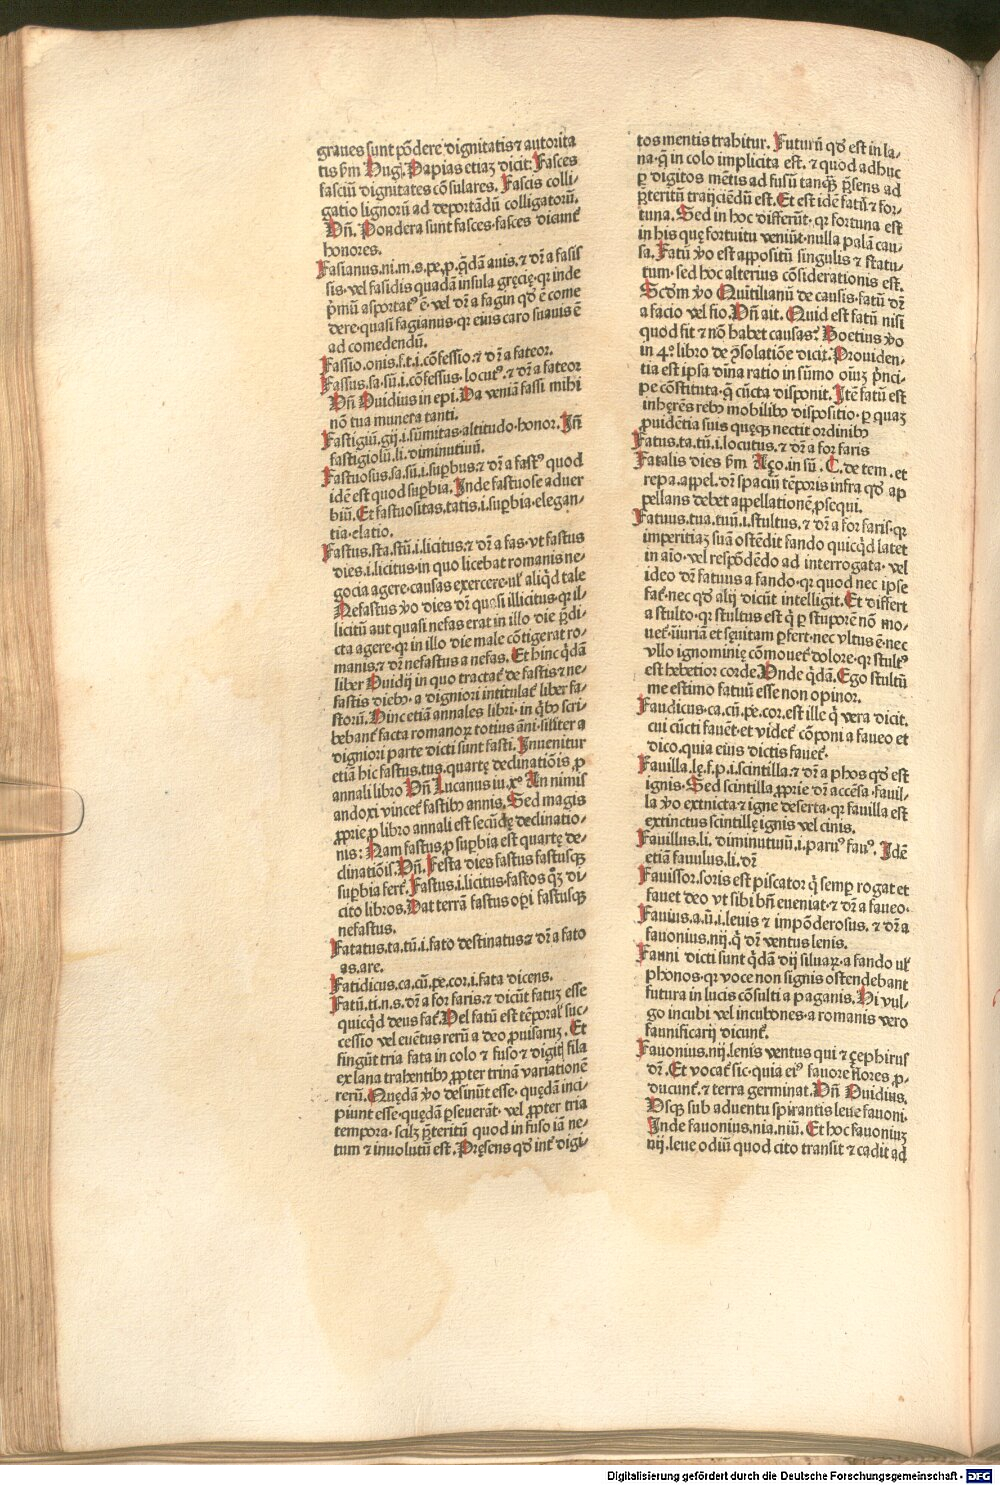 graues sunt põdere dignitatis ⁊ autorita
tis ẜm Hug. Papias etiaʒ dicit: Fasces
fasciũ dignitates cõsulares. Fascis colli⸗
gatio lignorũ ad deportãdũ colligatorũ.
Vñ. Pondera sunt fasces·fasces dicunť
honores.
Fasianus.ni.m.s.pe.ꝓ.q̃dã auis.⁊ dr̃ a fasis
sis·vel fasidis quadã insula gręcię·qꝛ inde
p̃mũ asportatꝰ ẽ·vel dr̃ a fagin qď ẽ come
dere·quasi fagianus·qꝛ eius caro suauis ẽ
ad comedendũ.
Fassio.onis.f.t.i.cõfessio.⁊ dr̃ a fateor.
Fassus.sa.sũ.i.cõfessus·locutꝰ.⁊ dr̃ a fateor
Vñ Ouidius in epi. Da veniã fassi mihi
nõ tua munera tanti.
Fastigiũ.gij.i.sũmitas·altitudo·honor. Iñ
fastigiolũ.li.diminutiuũ.
Fastuosus.sa.sũ.i.suꝑbus.⁊ dr̃ a fastꝰ quod
idẽ est quod suꝑbia. Inde fastuose aduer
biũ. Et fastuositas.tatis.i.suꝑbia·elegan⸗
tia·elatio.
Fastus.sta.stũ.i.licitus.⁊ dr̃ a fas·vt fastus
dies.i.licitus·in quo licebat romanis ne⸗
gocia agere·causas exercere·uł aliq̃d tale
Nefastus ṽo dies dr̃ quasi illicitus·qꝛ il⸗
licitũ aut quasi nefas erat in illo die p̃di⸗
cta agere·qꝛ in illo die male cõtigerat ro⸗
manis.⁊ dr̃ nefastus a nefas. Et hinc q̃dã
liber Ouidij in quo tractať de fastis ⁊ ne⸗
fastis diebꝰ·a digniori intitulať liber fa⸗
storũ. Hinc etiã annales libri·in q̃bꝰ scri⸗
bebanť facta romanoꝝ totius ãni·siłiter a
digniori parte dicti sunt fasti. Inuenitur
etiã hic fastus.tus.quartę declinatiõis ꝓ
annali libro Vñ Lucanus iu.xº In nimis
andoxi vinceť fastibꝰ annis. Sed magis
ꝓprie ꝓ libro annali est secũdę declinatio⸗
nis: Nam fastus ꝓ suꝑbia est quartę de⸗
clinatiõis. Vñ. Festa dies fastus fastusqꝫ
suꝑbia ferť. Fastus.i.licitus·fastos qꝫ di⸗
cito libros. Dat terrã fastus oꝑi fastusqꝫ
nefastus.
Fatatus.ta.tũ.i.fato destinatus.⁊ dr̃ a fato
as.are.
Fatidicus.ca.cũ.pe.cor.i.fata dicens.
Fatũ.ti.n.s.dr̃ a for faris.⁊ dicũt fatuʒ esse
quicq̃d deus fať. Vel fatũ est tẽporał suc⸗
cessio vel euẽtus rerũ a deo ꝓuisaruʒ. Et
fingũt tria fata in colo ⁊ fuso ⁊ digitꝭ fila
ex lana trahentibꝰ ꝓpter trinã variationẽ
rerũ. Quędã ṽo desinũt esse·quędã inci⸗
piunt esse·quędã ꝑseuerãt·vel ꝓpter tria
tempora·scilʒ p̃teritũ quod in fuso iã ne⸗
tum ⁊ inuolutũ est. Pręsens qď inť digi⸗
tos mentis trahitur. Futurũ qď est in la⸗
na·q̃ in colo implicita est.⁊ quod adhuc
ꝑ digitos mẽtis ad fusũ tanqꝫ p̃sens ad
p̃teritũ traijciẽdũ est. Et est idẽ fatũ ⁊ for⸗
tuna. Sed in hoc differũt·qꝛ fortuna est
in his quę fortuitu veniũt·nulla palã cau⸗
sa. Fatũ ṽo est appositũ singulis ⁊ statu⸗
tum·sed hoc alterius cõsiderationis est.
Scďm ṽo Quĩtilianũ de causis·fatũ dr̃
a facio vel fio. Vñ ait. Quid est fatũ nisi
quod fit ⁊ nõ habet causas? Boetius ṽo
in 4º libro de ꝯsolatiõe dicit. Prouiden⸗
tia est ipsa diuina ratio in sũmo oĩuʒ p̃nci⸗
pe cõstituta·q̃ cũcta disponit. Itẽ fatũ est
inhęrẽs rebꝰ mobilibꝰ dispositio·ꝑ quaʒ
ꝓuidẽtia suis quęqꝫ nectit ordinibꝰ
Fatus.ta.tũ.i.locutus.⁊ dr̃ a for faris
Fatalis dies ẜm Aço.in sũ. C.de tem.et
repa.appel.dr̃ spaciũ tẽporis infra qď ap
pellans debet appellationẽ ꝓsequi.
Fatuus.tua.tuũ.i.stultus.⁊ dr̃ a for faris·qꝛ
imperitiaʒ suã ostẽdit fando quicq̃d latet
in aio·vel respõdẽdo ad interrogata·vel
ideo dr̃ fatuus a fando·qꝛ quod nec ipse
fať·nec qď alij dicũt intelligit. Et differt
a stulto·qꝛ stultus est q̃ ꝑ stuporẽ nõ mo⸗
ueť·iniuriã et sęuitam ꝑfert·nec vltus ẽ·nec
vllo ignominię cõmoueť dolore·qꝛ stultꝰ
est hebetior corde. Vnde q̃dã. Ego stultũ
me estimo fatuũ esse non opinor.
Faudicus.ca.cũ.pe.cor.est ille q̃ vera dicit.
cui cũcti fauẽt·et videť cõponi a faueo et
dico.quia eius dictis faueť.
Fauilla.lę.f.p.i.scintilla.⁊ dr̃ a phos qď est
ignis. Sed scintilla ꝓprie dr̃ accẽsa·fauil⸗
la ṽo extincta ⁊ igne deserta·qꝛ fauilla est
extinctus scintillę ignis vel cinis.
Fauillus.li. diminutiuũ.i.paruꝰ fauꝰ. Idẽ
etiã fauulus.li.dr̃
Fauissor.soris est piscator q̃ semꝑ rogat et
fauet deo vt sibi bñ eueniat·⁊ dr̃ a faueo.
Fauius.a.ũ.i.leuis ⁊ impõderosus.⁊ dr̃ a
fauonius.nij.q̃ dr̃ ventus lenis.
Fauni dicti sunt q̃dã dij siluaꝝ·a fando uł
phonos·qꝛ voce non signis ostendebant
futura in lucis cõsulti a paganis. Hi vul⸗
go incubi vel incubones·a romanis vero
faunificarij dicunť.
Fauonius.nij.lenis ventus qui ⁊ çephirus
dr̃. Et vocať sic·quia eiꝰ fauore flores ꝓ⸗
ducunť.⁊ terra germinat. Vñ Ouidius.
Vsqꝫ sub aduentu spirantis leue fauoni.
Inde fauonius.nia.niũ. Et hoc fauoniuʒ
nij.leue odiũ quod cito transit ⁊ cadit ad
Digitalisierung gefördert durch die Deutsche Forschungsgemeinschaft - DFG